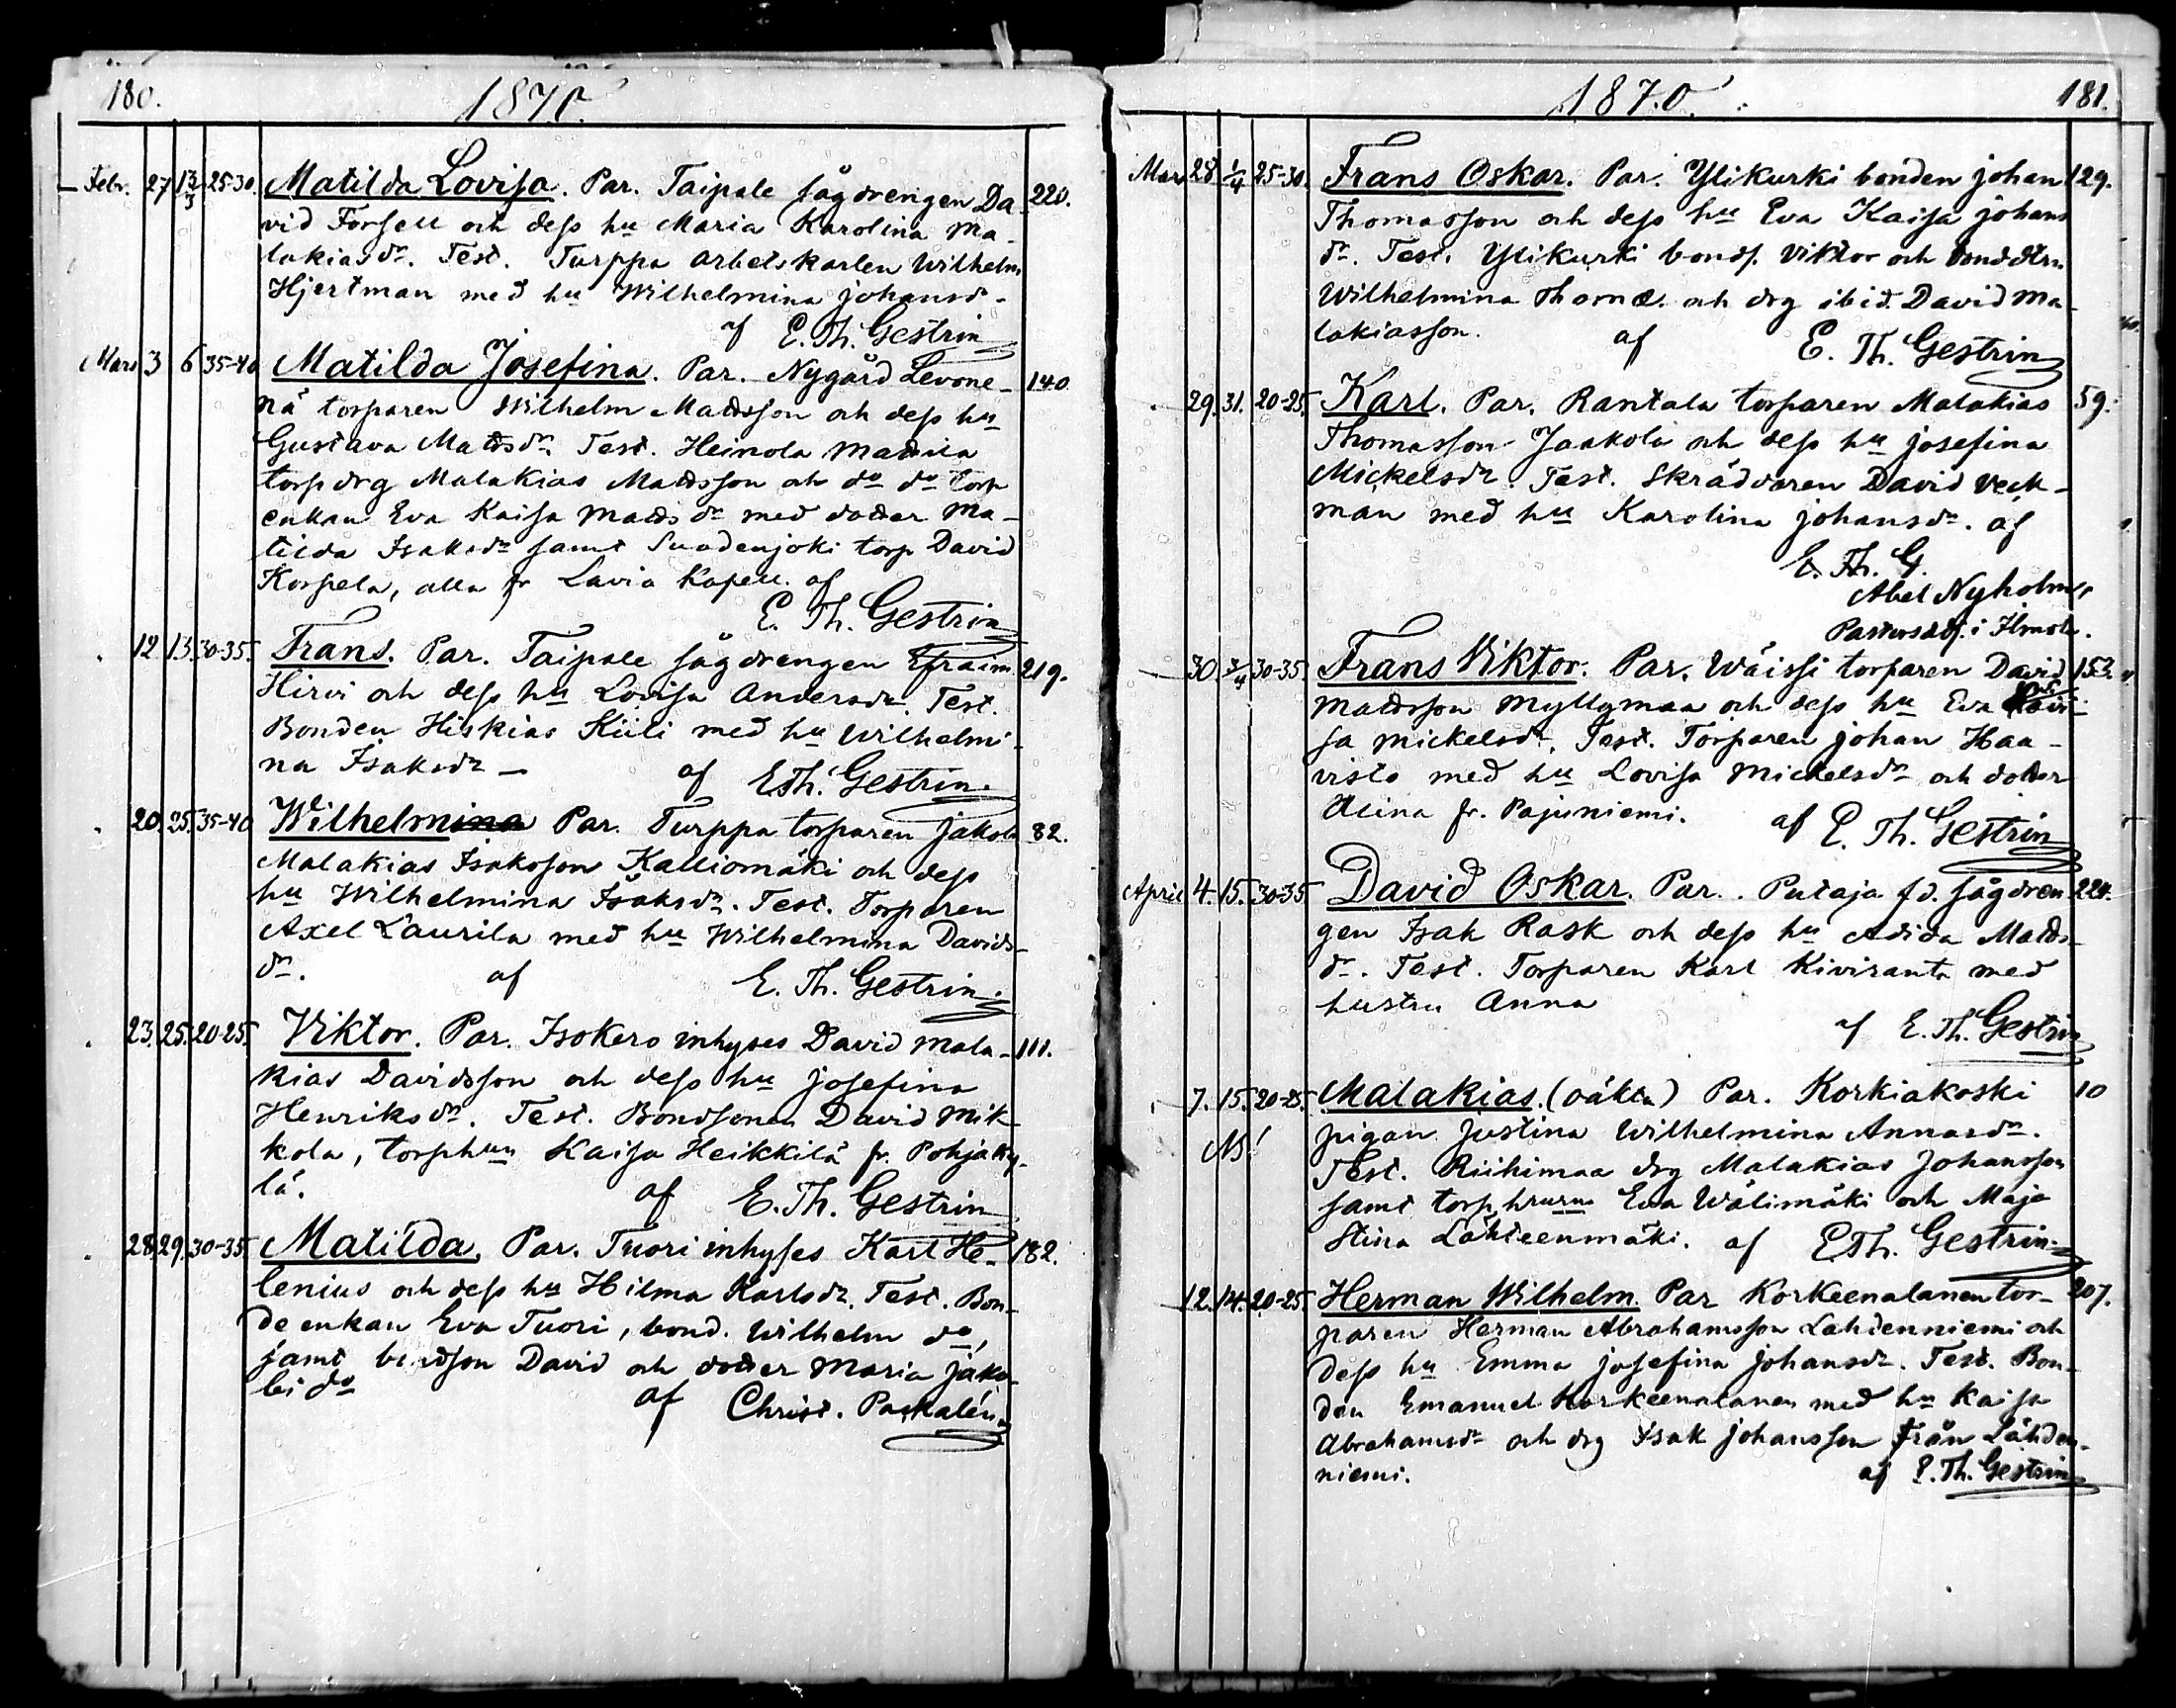 180.
1870.
Febr. 27 13/3 25-30. Matilda Lovisa. Par. Taipale sågdrengen Da- 220.
vid Forsell och dess hu Maria Karolina Ma-
lakiasdr. Test. Turppa arbetskarlen Wilhelm
Hjertman med hu Wilhelmina Johansdr.
af E. Th. Gestrin
Mars 3 6 35-40 Matilda Josefina. Par. Nygård Levone- 140.
nä torparen Wilhelm Mattsson och dess hu
Gustava Mattsdr. Test. Heinola Mattila
torpdrg Malakias Mattsson och do do torp
enkan Eva Kaisa Mattsdr med dotter Ma-
tilda Isaksdr samt Suodenjoki torp David
Korpela, alla fr Lavia Kapell. af
E. Th. Gestrin
12. 13. 30-35. Frans. Par. Taipale sågdrengen Efraim 219.
Hirvi och dess hu Lovisa Andersdr. Test.
Bonden Hiskias Kiili med hu Wilhelmi-
na Isaksdr – af E Th. Gestrin.
20. 25. 35-40 Wilhelmina Par. Turppa torparen Jakola 82.
Malakias Isaksson Kalliomäki och dess
hu Wilhelmina Isaksdr. Test. Torparen
Axel Laurila med hu Wilhelmina Davids-
dr. af E. Th. Gestrin.
23. 25. 20-25. Viktor. Par. Isokero inhyses David Mala- 111.
kias Davidsson och dess hu Josefina
Henriksdr. Test. Bondsonen David Mik-
kola, torphun Kaisa Heikkilä fr. Pohjaky-
lä. af E. Th. Gestrin
28. 29. 30-35. Matilda. Par. Tuori inhyses Karl He- 182.
lenius och dess hu Hilma Karlsdr. Test. Bon-
deenkan Eva Tuori, bond. Wilhelm do,
samt bondson David och dotter Maria Jako-
bi do af Christ. Paskalén
1870.
181.
Mars 28 1/4 25-30. Frans Oskar. Par. Ylikurki bonden Johan 129.
Thomasson och dess hu Eva Kaisa Johans
dr. Test. Ylikurki bonds. Viktor och bonddtrn
Wilhelmina Thomæ. och drg ibid. David Ma-
lakiasson. af E. Th. Gestrin
29. 31. 20-25. Karl. Par. Rantala torparen Malakias 59.
Thomasson Jaakola och dess hu Josefina
Mickelsdr. Test. Skräddaren David Veck-
man med hu Karolina Johansdr. af
E. Th. G.
Abel Nyholm,
Pastorsadj. i Ilmola.
30. 3/4 30-35. Frans Viktor. Par. Wäissi torparen David 153.
Mattsson Myllymaa och dess hu Eva
sa Mickelsdr. Test. Torparen Johan Haa-
visto med hu Lovisa Mickelsdr och dotter
Alina fr. Pajuniemi. af E. Th. Gestrin
April 4. 15. 30-35. David Oskar. Par. Putaja f.d. sågdren- 224.
gen Isak Rask och dess hu Adida Matts-
dr. Test. Torparen Karl Kiviranta med
hustru Anna
af E. Th. Gestrin
7. 15. 20-25. Malakias. (oäkta) Par. Korkiakoski 10
NB! pigan Justina Wilhelmina Annasdr.
Test. Riihimaa drg Malakias Johansson
samt torphrurna Eva Wälimäki och Maja
Stina Lähteenmäki. af E Th. Gestrin.
12. 14. 20-25. Herman Wilhelm. Par Korkeenalanen tor- 207.
paren Herman Abrahamsson Lahdenniemi och
dess hu Emma Josefina Johansdr. Test. Bon-
den Emanuel Korkeenalanen med hu Kaisa
Abrahamsdr och drg Isak Johansson från Lähden-
niemi. af E. Th. Gestrin